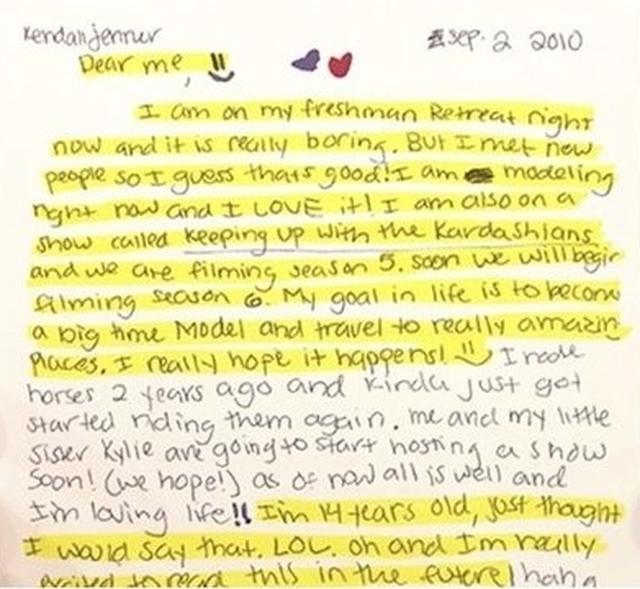 Kendall Jenner
Sep. 2 2010
Dear me,
I am on my freshman Retreat right
now and it is really boring. But I met new
people so I guess thats good! I am modeling
right now and I LOVE it! I am also on a
show called Keeping up with the Kardashians
and we are filming season 5. soon we will begin
filming season 6. My goal in life is to become
a big time Model and travel to really amazing
Places. I really hope it happens! I rode
horses 2 years ago and kinda just got
started riding them again. me and my little
siser Kylie are going to start hosting a show
Soon! (we hope!) as of now all is well and
I'm loving life!! I'm 14 years old, just thought
I would say that. LOL. oh and I'm really
excited to read this in the future! haha